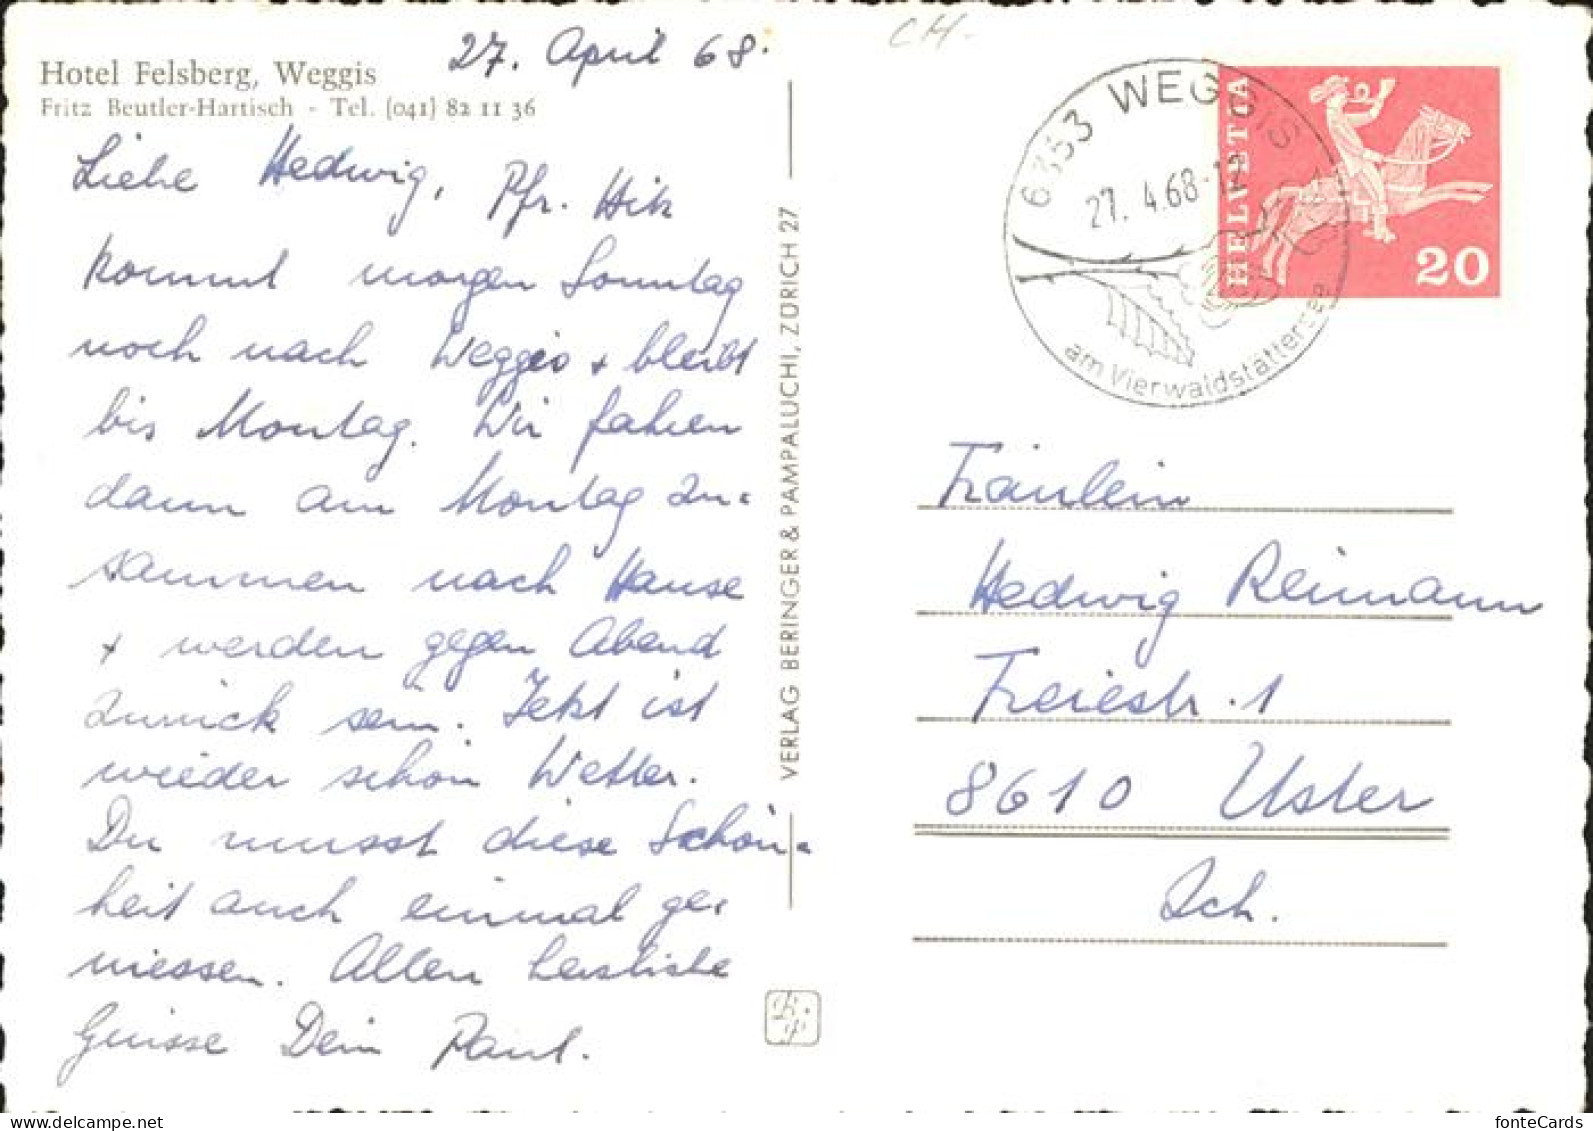 27. April 68.
CH.
Hotel Felsberg, Weggis
Fritz Beutler-Hartisch - Tel. (041) 82 11 36
Liebe Hedwig, Pfr. Hitz
kommt morgen Sonntag
noch nach Weggis + bleibt
bis Montag. Wir fahren
dann am Montag zu-
sammen nach Hause
+ werden gegen Abend
zurück sein. Jetzt ist
wieder schön Wetter.
Du musst diese Schön-
heit auch einmal ge-
niessen. Allen herzliche
Grüsse Dein Paul.
VERLAG BERINGER & PAMPALUCHI, ZÜRICH 27
6353 WEGGIS
27. 4.68-12
am Vierwaldstättersee
HELVETIA
20
Fräulein
Hedwig Reimann
Freiestr. 1
8610 Uster
Zch.
fonteCards
www.delcampe.net